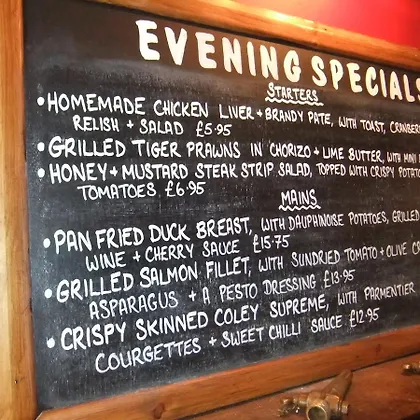 EVENING SPECIALS
STARTERS
• HOMEMADE CHICKEN LIVER + BRANDY PATE, WITH TOAST,
RELISH + SALAD £5.95
• GRILLED TIGER PRAWNS IN CHORIZO + LIME BUTTER, WITH MINI
• HONEY + MUSTARD STEAK STRIP SALAD, TOPPED WITH CRISPY
TOMATOES £6.95
MAINS
• PAN FRIED DUCK BREAST, WITH DAUPHINOISE POTATOES, GRILLED
WINE + CHERRY SAUCE £15.75
• GRILLED SALMON FILLET, WITH SUNDRIED TOMATO + OLIVE
ASPARAGUS + A PESTO DRESSING £13.95
• CRISPY SKINNED COLEY SUPREME, WITH PARMENTIER
COURGETTES + SWEET CHILLI SAUCE £12.95